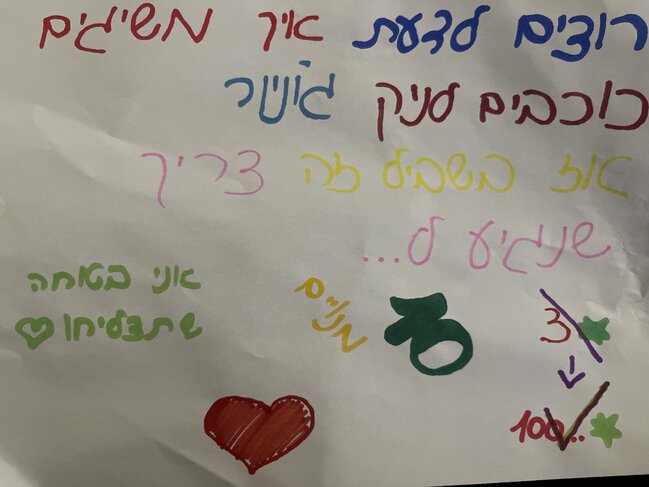 רוצים לדעת איך משיגים
כוכבים לניק ג'וניור
אז בשביל זה צריך
שנגיע ל...
אני בטוחה
שתצליחו
70
מנויים
3
100..